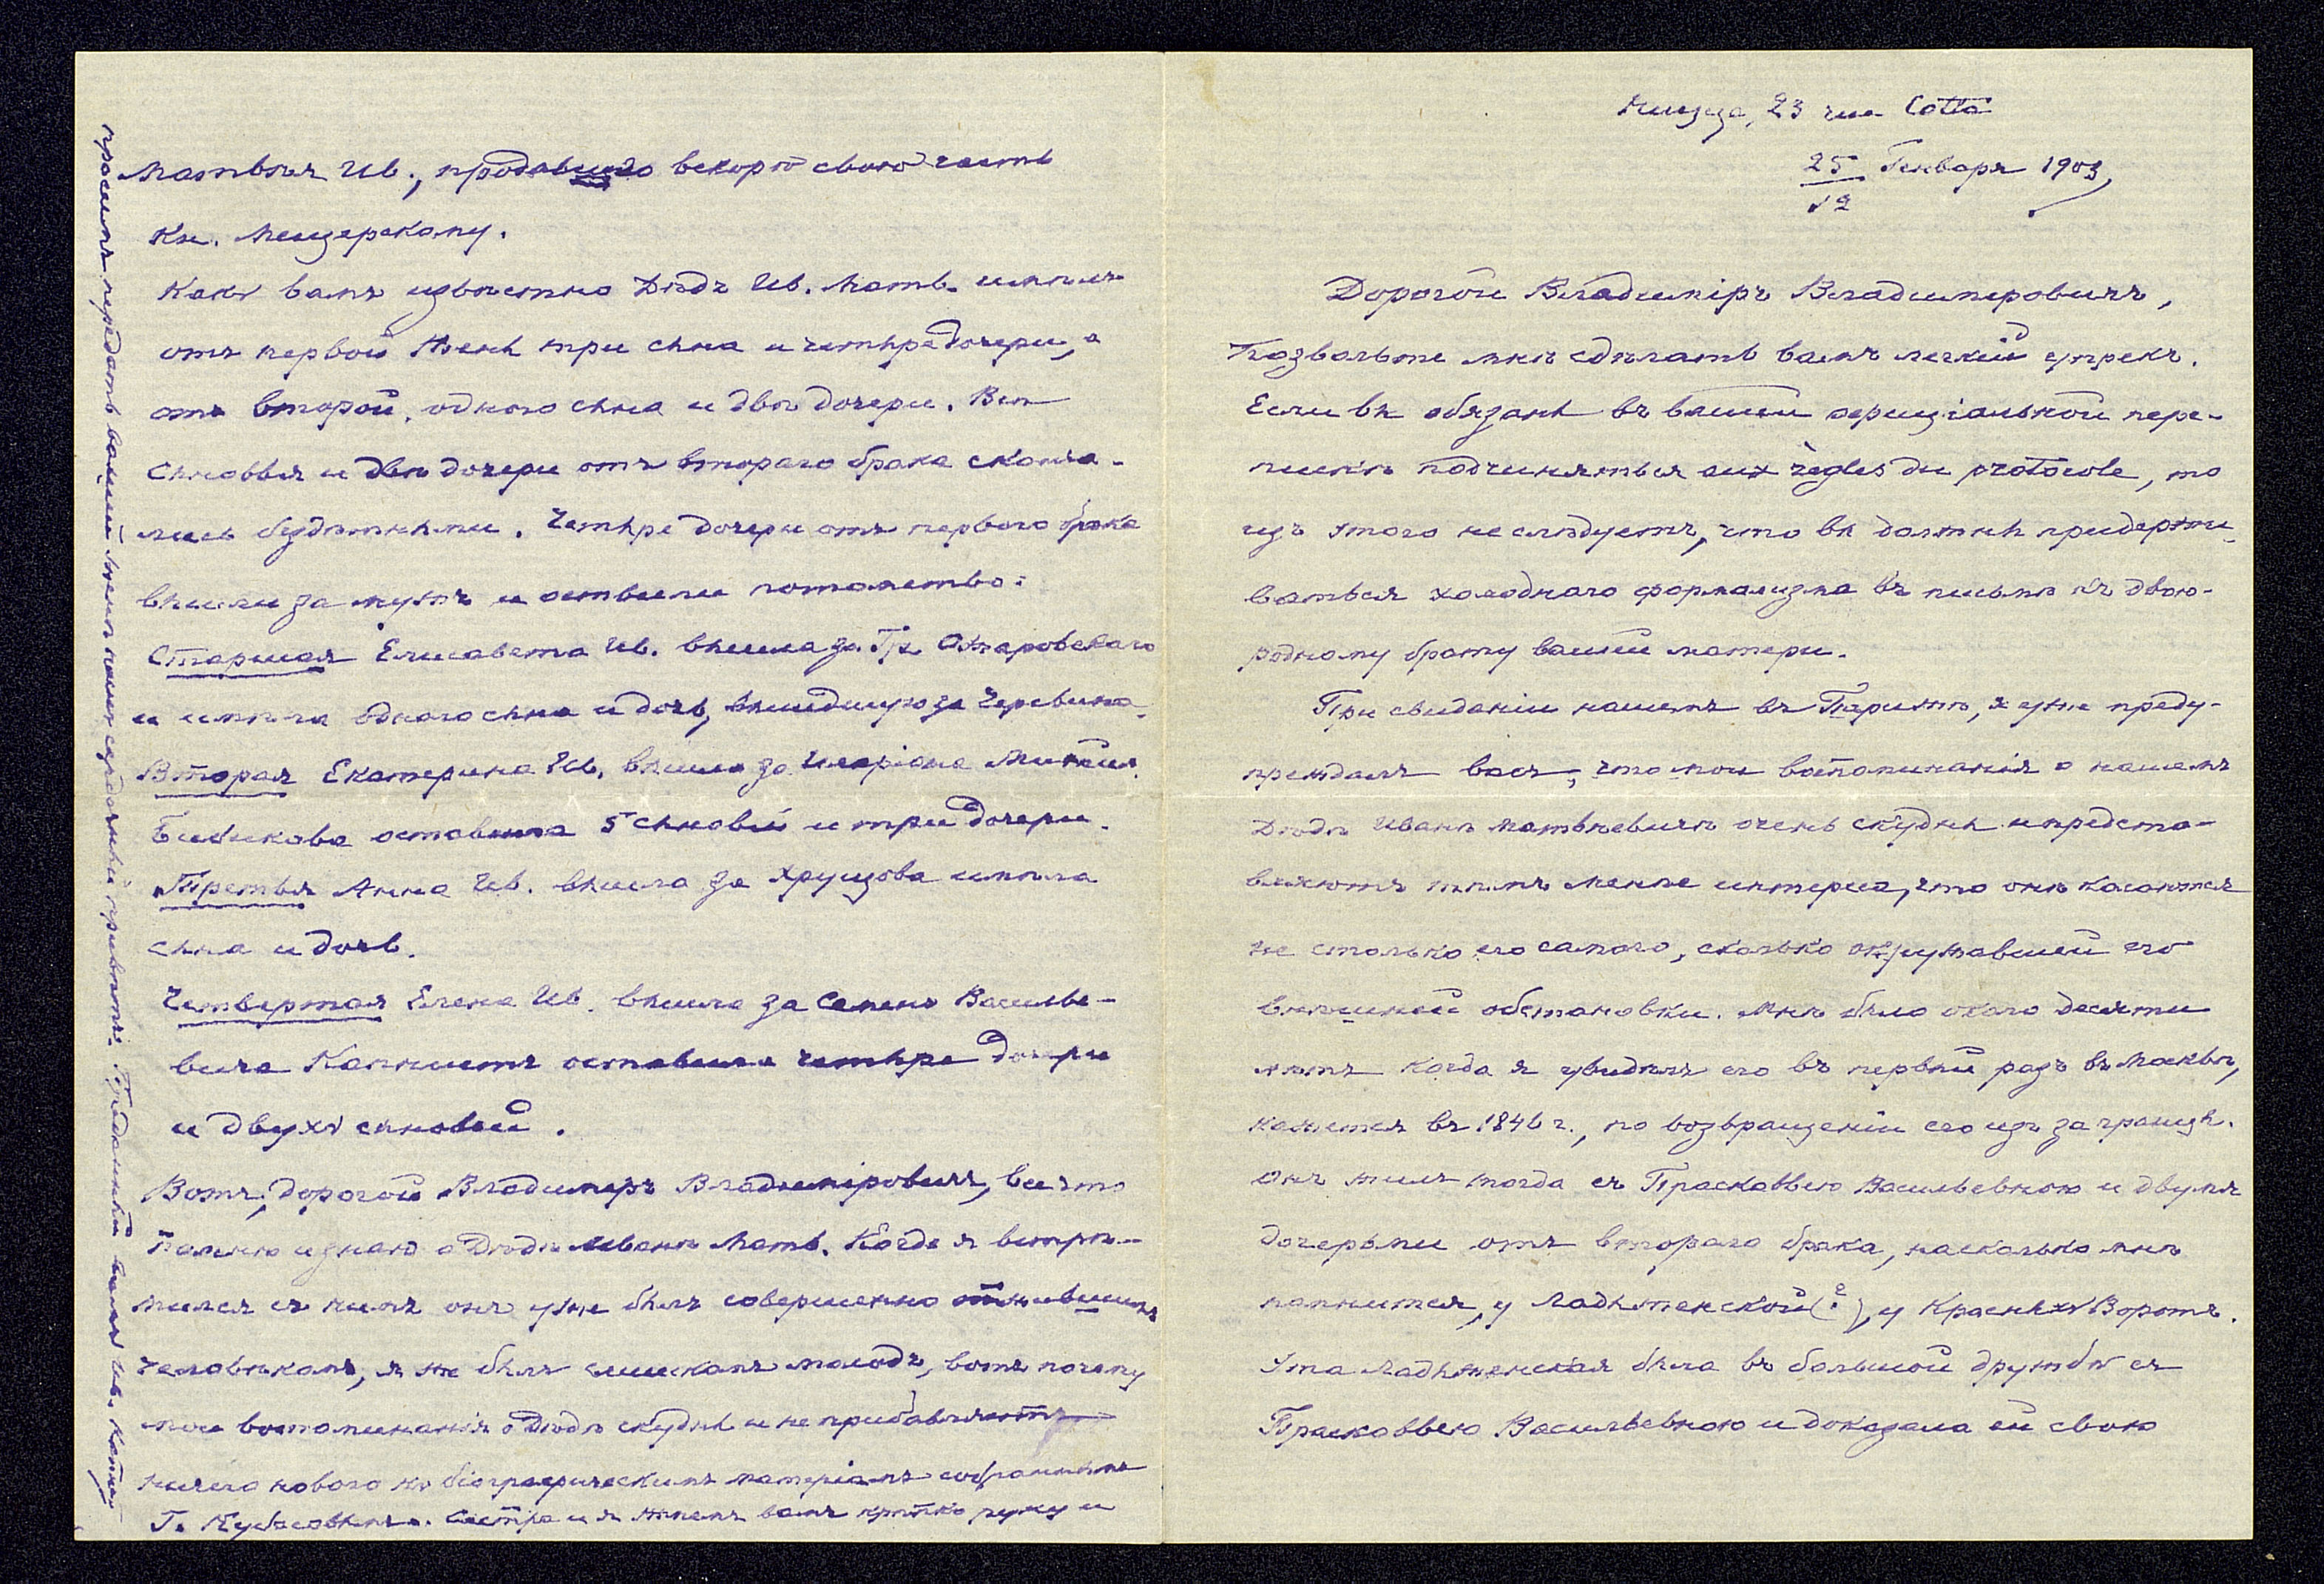 Ницца, 23 rue Cotta
25 Генваря 1903
12
Дорогой Владиміръ Владимировичъ,
Позвольте мнѣ сдѣлать вамъ легкій упрекъ.
Если вы обязаны въ вашей официіальной пере-
пискѣ подчиняться aux règles du protocole, то
изъ этого не слѣдуетъ, что вы должны придержи-
ваться холоднаго формализма въ письмѣ къ двою-
родному брату вашей матери.
При свиданіи нашемъ въ Парижѣ, я уже преду-
преждалъ васъ, что мои воспоминанія о нашемъ
Дѣдѣ Иванѣ Матвѣевичѣ очень скудны и предста-
вляютъ тѣмъ менѣе интереса, что онѣ касаются
не столько его самого, сколько окружавшей его
внѣшней обстановки. Мнѣ было около десяти
лѣтъ когда я увидѣлъ его въ первый разъ въ Москвѣ,
кажется въ 1846 г., по возвращеніи его изъ за границы.
Онъ жилъ тогда съ Прасковьею Васильевною и двумя
дочерьми отъ втораго брака, насколько мнѣ
помнится, у Ладыженской (?), у Красныхъ Воротъ.
Эта Ладыженская была въ большой дружбѣ съ
Прасковьею Васильевною и доказала ей свою
Матвѣя Ив., продавшаго вскорѣ свою часть
Кн. Мещерскому.
Какъ вамъ извѣстно Дѣдъ Ив. Матв. имѣлъ
отъ первой жены три сына и четыре дочери, а
отъ второй, одного сына и двѣ дочери. Всѣ
сыновья и двѣ дочери отъ втораго брака сконча-
лись бездѣтными. Четыре дочери отъ перваго брака
вышли за мужъ и оставили потомство:
Старшая Елисавета Ив. вышла за Гр. Ожаровскаго
и имѣла одного сына и дочь, вышедшую за Черевина.
Вторая Екатерина Ив. вышла за Иларіона Мих.
Бибикова оставила 5 сыновей и три дочери.
Третья Анна Ив. вышла за Хрущова имѣла
сына и дочь.
Четвертая Елена Ив. вышла за Семена Василье-
вича Капнистъ оставила четыре дочери
и двухъ сыновей.
Вотъ, дорогой Владимиръ Владиміровичъ, все что
помню и знаю о Дѣдѣ Иванѣ Матв. Когда я встрѣ-
тился съ нимъ онъ уже былъ совершенно отжившимъ
человѣкомъ, я же былъ слишкомъ молодъ, вотъ почему
мои воспоминанія о Дѣдѣ скудны и не прибавляютъ
ничего новаго къ біографическимъ матеріаламъ собраннымъ
Г. Кубасовымъ. Сестра и я жмемъ вамъ крѣпко руку и
просимъ передать вашей женѣ нашъ сердечный привѣтъ. Преданный вамъ Ив. Капн.